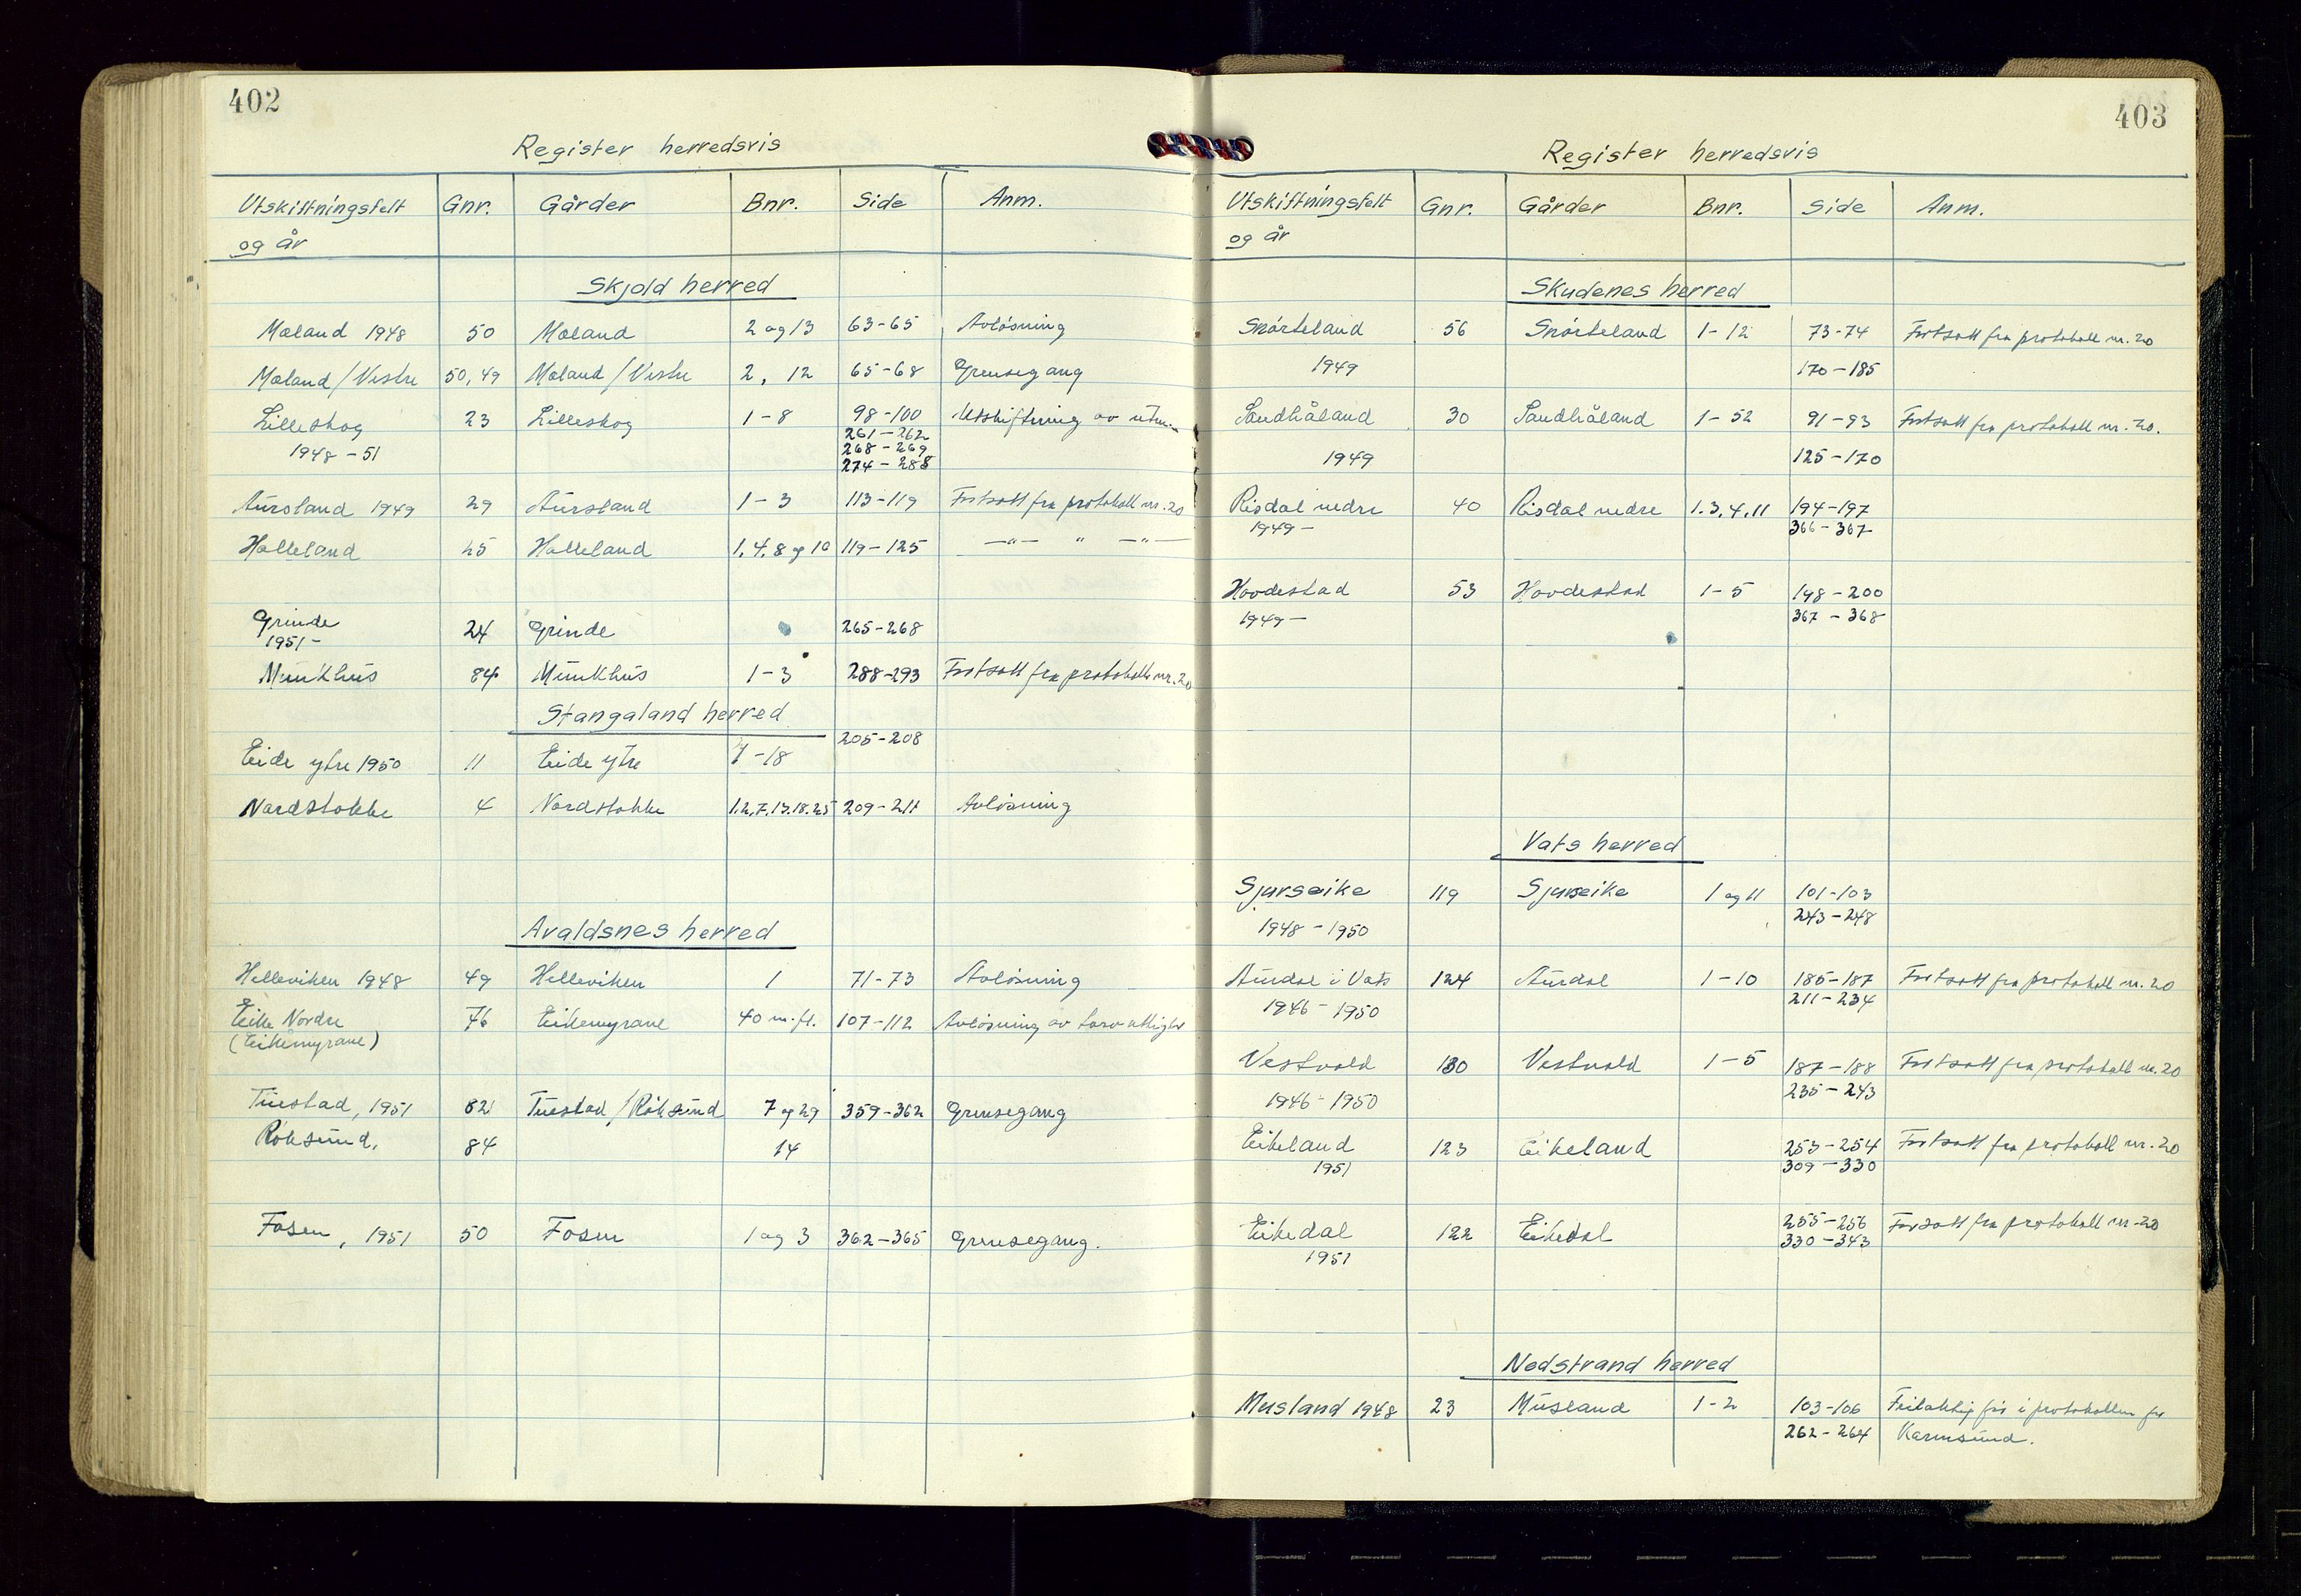 402
Register herredsvis
Utskiftningsfelt og år Gnr. Gårder Bnr. Side Anm.
Skjold herred
Mæland 1948 50 Mæland 2 og 13 63-65 Avlösning
Mæland/Vestre 50, 49 Mæland/Vestre 2, 12 65-68 Grensegang
Lilleskog 23 Lilleskog 1-8 98-100 Utskiftning av utm.
261-262
268-269
1948-51 274-288
Aursland 1949 29 Aursland 1-3 113-119 Fortsatt fra protokoll nr. 20
Halleland 45 Halleland 1, 4, 8 og 10 119-125 -"- " -"-
Grinde 24 Grinde 265-268
1951-
Munkhus 84 Munkhus 1-3 288-293 Fortsatt fra protokoll nr. 20
Stangaland herred
205-208
Eide ytre 1950 11 Eide ytre 7-18
Nordstokke 4 Nordstokke 1.2.7.13.18.25 209-211 Avlösning
Avaldsnes herred
Helleviken 1948 49 Helleviken 1 71-73 Avlösning
Eike Nordre 76 Eikemyrane 40 m.fl. 107-112 Avlösning av torv
(Eikemyrane)
Tuestad, 1951 82 Tuestad/Röksund 7 og 29 359-362 Grensegang
Röksund, 84 14
Fosen, 1951 50 Fosen 1 og 3 362-365 Grensegang.
403
Register herredsvis
Utskiftningsfelt og år Gnr. Gårder Bnr. Side Anm.
Skudenes herred
Snörteland 56 Snörteland 1-12 73-74 Fortsatt fra protokoll nr. 20
1949 170-185
Sandhåland 30 Sandhåland 1-52 91-93 Fortsatt fra protokoll nr. 20.
1949 125-170
Risdal nedre 40 Risdal nedre 1.3.4.11 194-197
1949- 366-367
Hovdestad 53 Hovdestad 1-5 198-200
1949- 367-368
Vats herred
Sjurseike 119 Sjurseike 1 og 11 101-103
243-248
1948-1950
Aurdal i Vats 124 Aurdal 1-10 185-187 Fortsatt fra protokoll nr. 20
1946-1950 211-234
Vestvold 130 Vestvold 1-5 187-188 Fortsatt fra protokoll nr. 20
1946-1950 235-243
Eikeland 123 Eikeland 253-254 Fortsatt fra protokoll nr. 20
1951 309-330
Eikedal 122 Eikedal 255-256 Fortsatt fra protokoll nr. 20
1951 330-343
Nedstrand herred
Musland 1948 23 Musland 1-2 103-106 Feilaktig för i protokollen for
262-264 Karmsund.